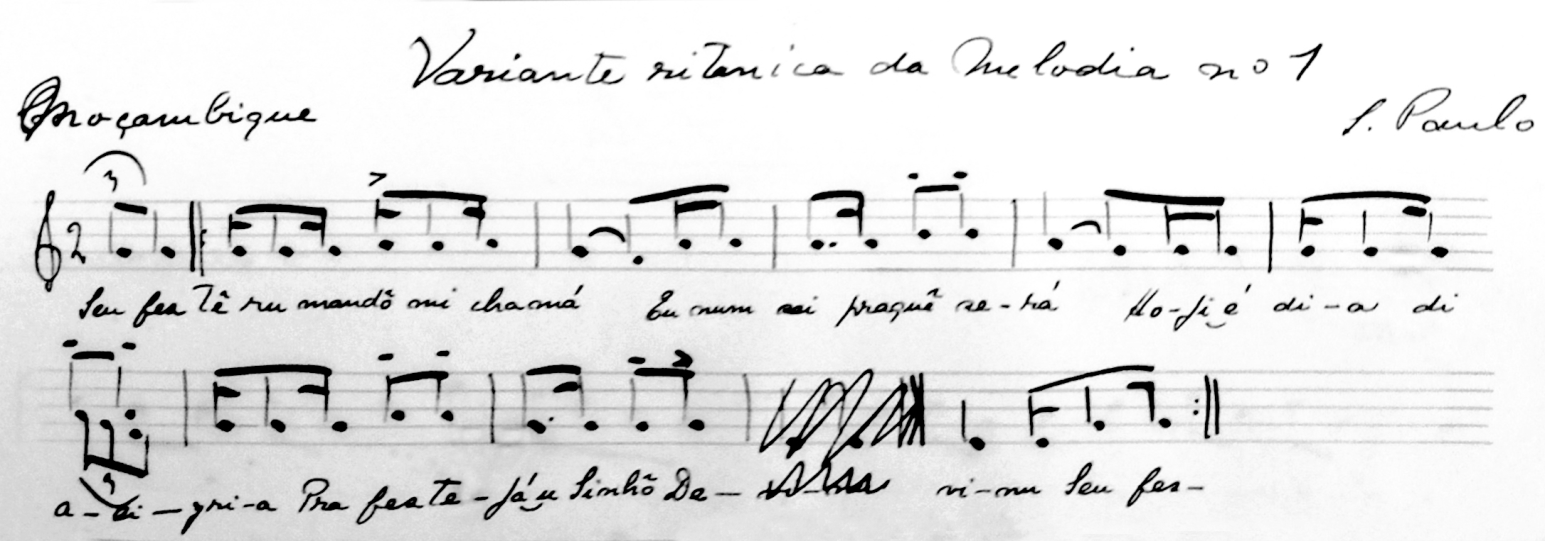 Variante ritmica da Melodia nº 1
Moçambique
S. Paulo
3
2
Seu fes tê ru mandô mi chamá Eu num sei praquê se-rá Ho-ji é di-a di
3
a-lei-gri-a Pra feste-já u Sinhô De- vi-nu Seu fes-